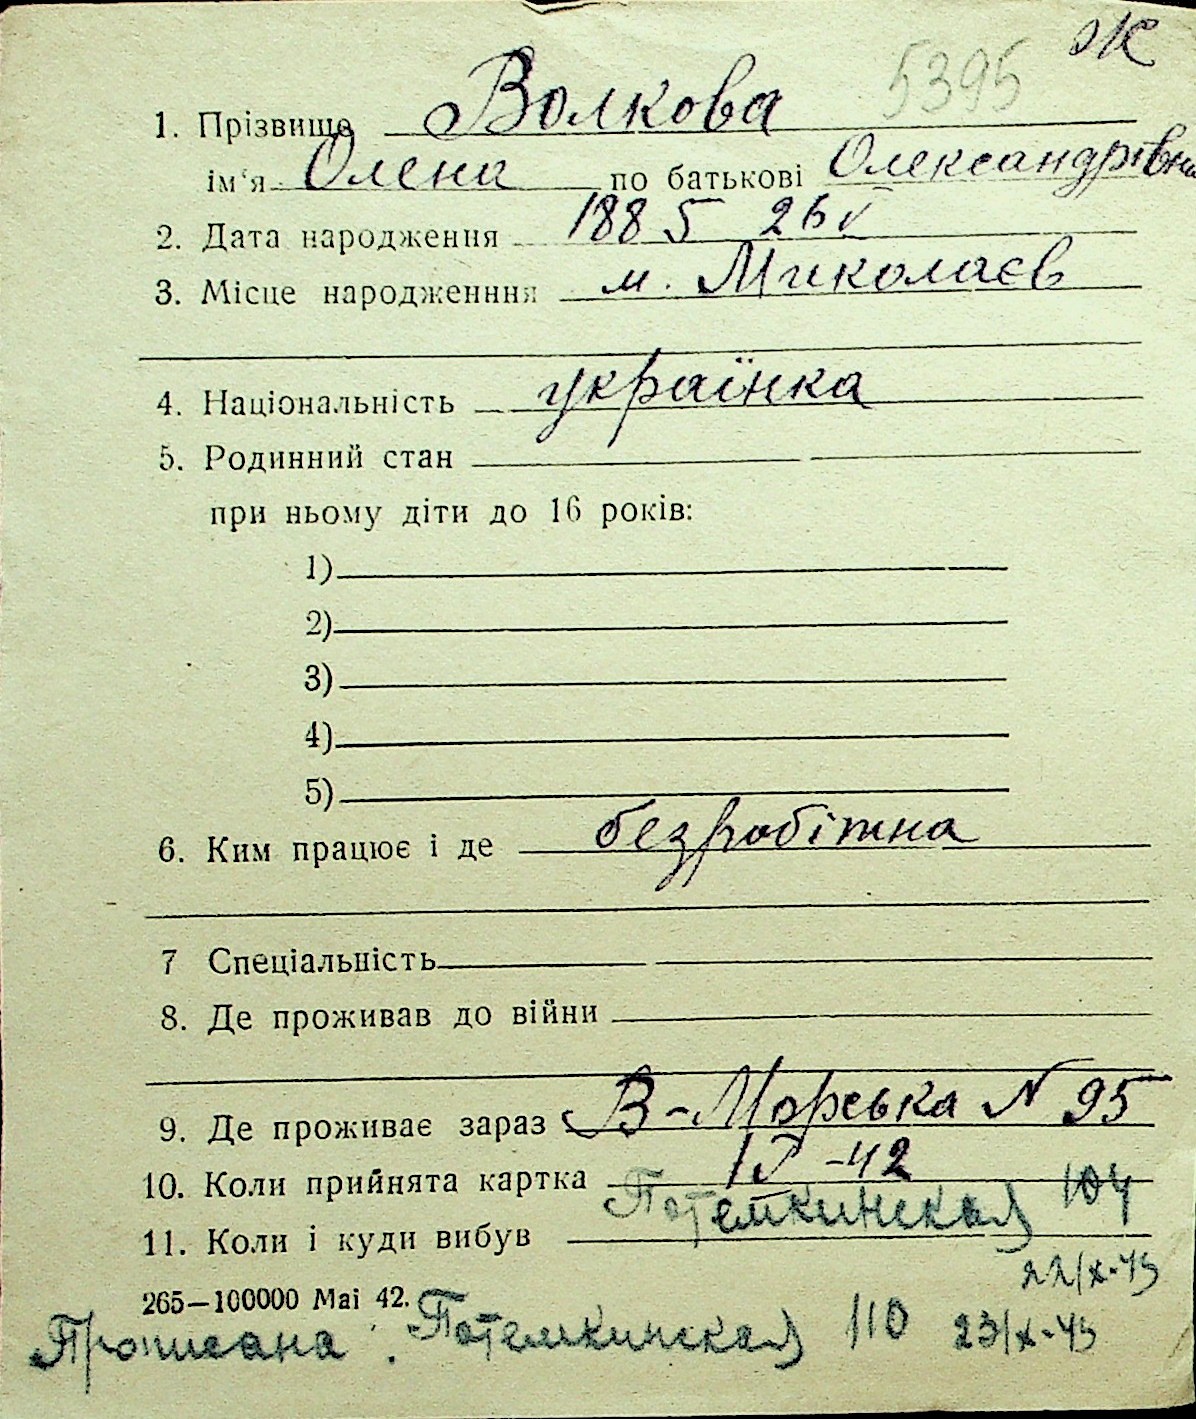 Ж
5395
1. Прізвище Волкова
ім'я Олена по батькові Олександрівна
2. Дата народження 1885 26 V
3. Місце народженння м. Миколаєв
4. Національність українка
5. Родинний стан
при ньому діти до 16 років:
1)
2)
3)
4)
5)
6. Ким працює і де безробітна
7 Спеціальність
8. Де проживав до війни
9. Де проживає зараз В-Морська N 95
10. Коли прийнята картка -42
11. Коли і куди вибув Потемкинская 104
22/X-43
265—100000 Mai 42.
Прописана. Потемкинская 110 23/X-43